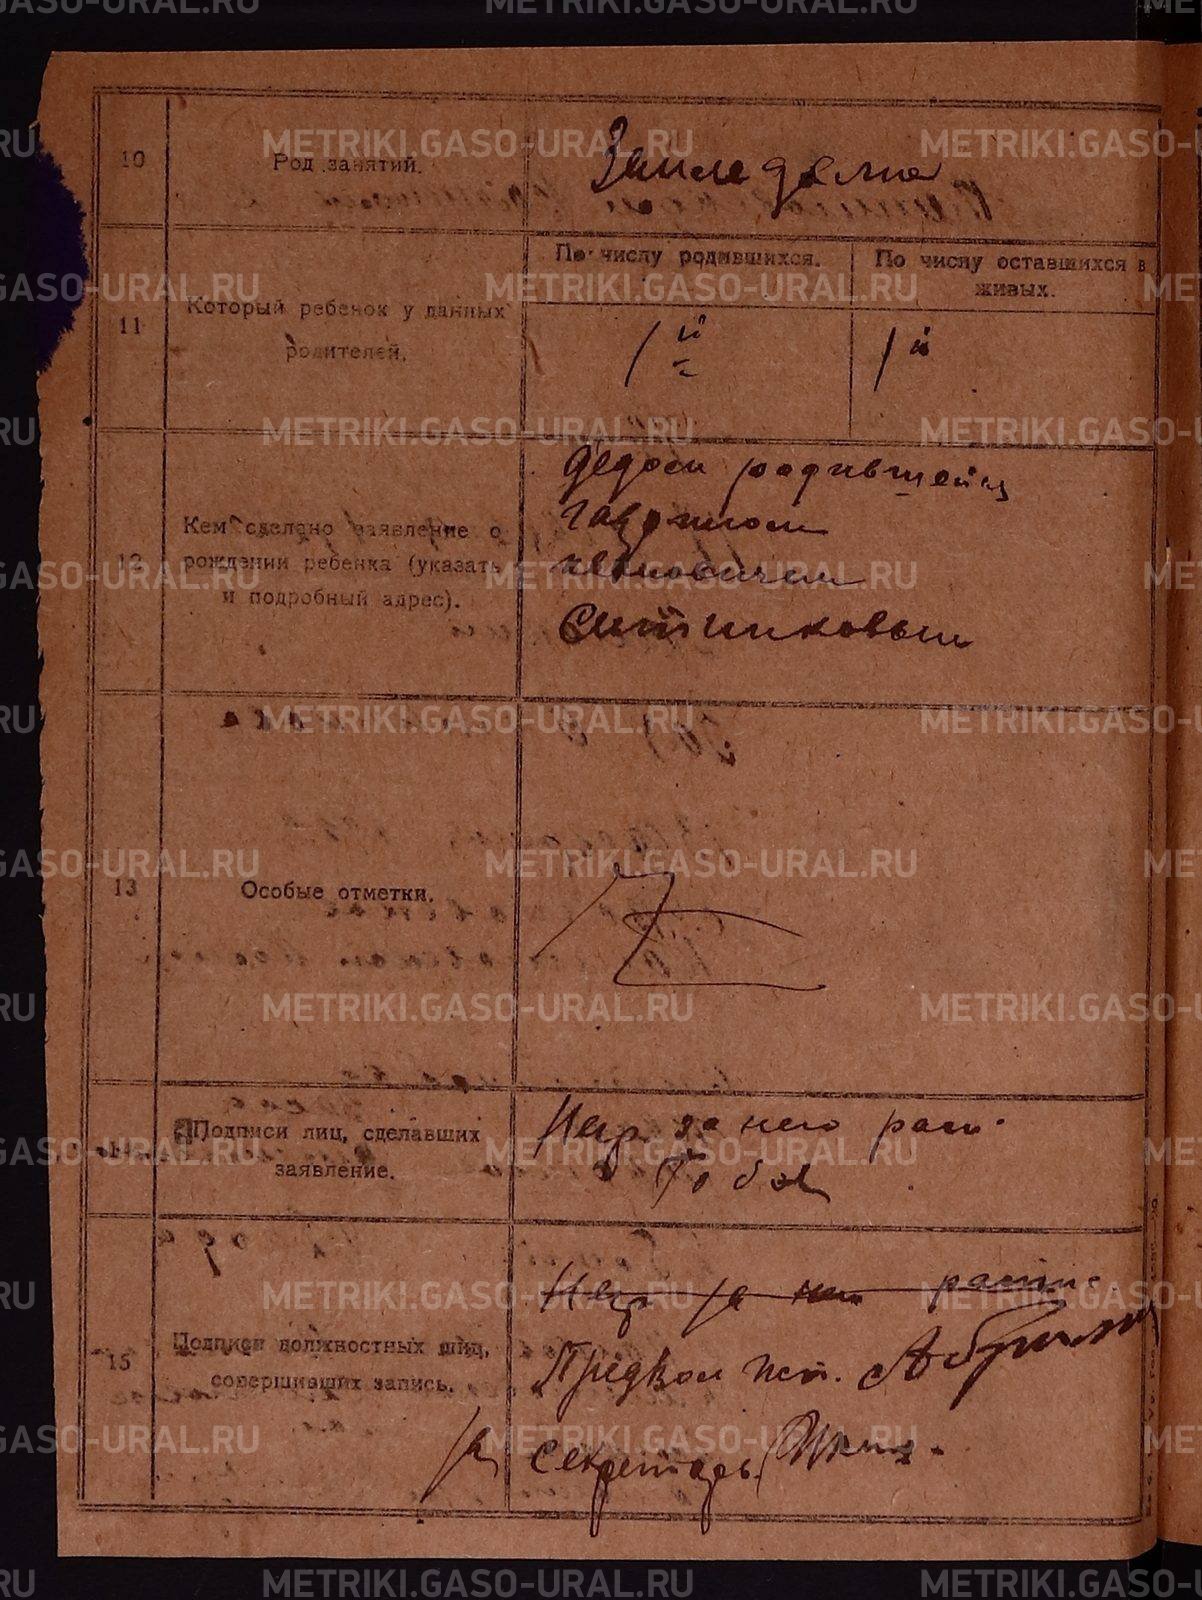 10
Род занятий.
Земледелие
11
Который ребенок у данных
родителей.
По числу родившихся.
По числу оставшихся в
живых.
1й
1й
12
Кем сделано заявление о
рождении ребенка (указать
и подробный адрес).
дедом родившейся
Ситниковым
13
Особые отметки.
14
Подписи лиц, сделавших
заявление.
Негр за него расп.
15
Подписи должностных лиц,
совершивших запись.
Негр за него распис
за секретарь
METRIKI.GASO-URAL.RU